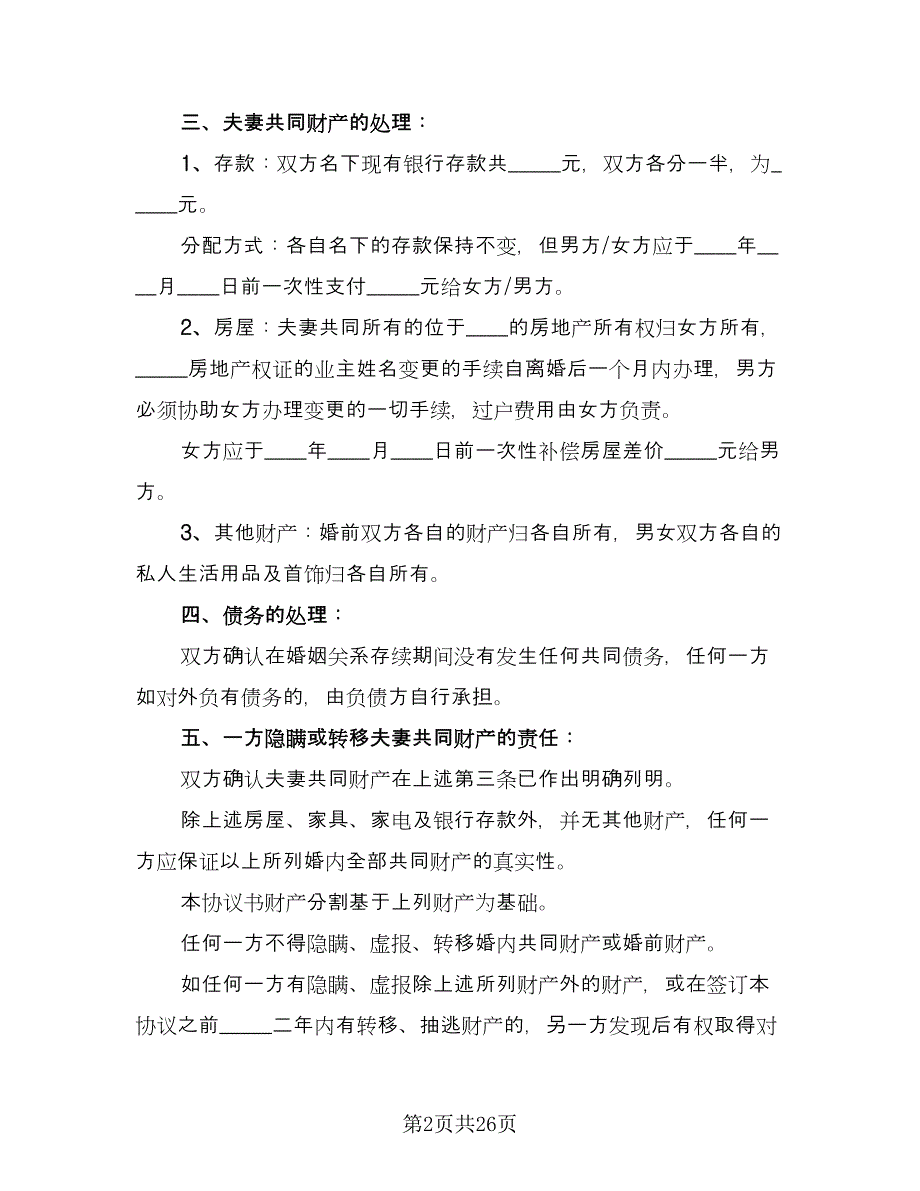 三、夫妻共同财产的处理：
1、存款：双方名下现有银行存款共_____元，双方各分一半，为_
____元。
分配方式：各自名下的存款保持不变，但男方/女方应于____年__
__月____日前一次性支付_____元给女方/男方。
2、房屋：夫妻共同所有的位于____的房地产所有权归女方所有，
_____房地产权证的业主姓名变更的手续自离婚后一个月内办理，男方
必须协助女方办理变更的一切手续，过户费用由女方负责。
女方应于____年____月____日前一次性补偿房屋差价_____元给男
方。
3、其他财产：婚前双方各自的财产归各自所有，男女双方各自的
私人生活用品及首饰归各自所有。
四、债务的处理：
双方确认在婚姻关系存续期间没有发生任何共同债务，任何一方
如对外负有债务的，由负债方自行承担。
五、一方隐瞒或转移夫妻共同财产的责任：
双方确认夫妻共同财产在上述第三条已作出明确列明。
除上述房屋、家具、家电及银行存款外，并无其他财产，任何一
方应保证以上所列婚内全部共同财产的真实性。
本协议书财产分割基于上列财产为基础。
任何一方不得隐瞒、虚报、转移婚内共同财产或婚前财产。
如任何一方有隐瞒、虚报除上述所列财产外的财产，或在签订本
协议之前_____二年内有转移、抽逃财产的，另一方发现后有权取得对
第2页共26页